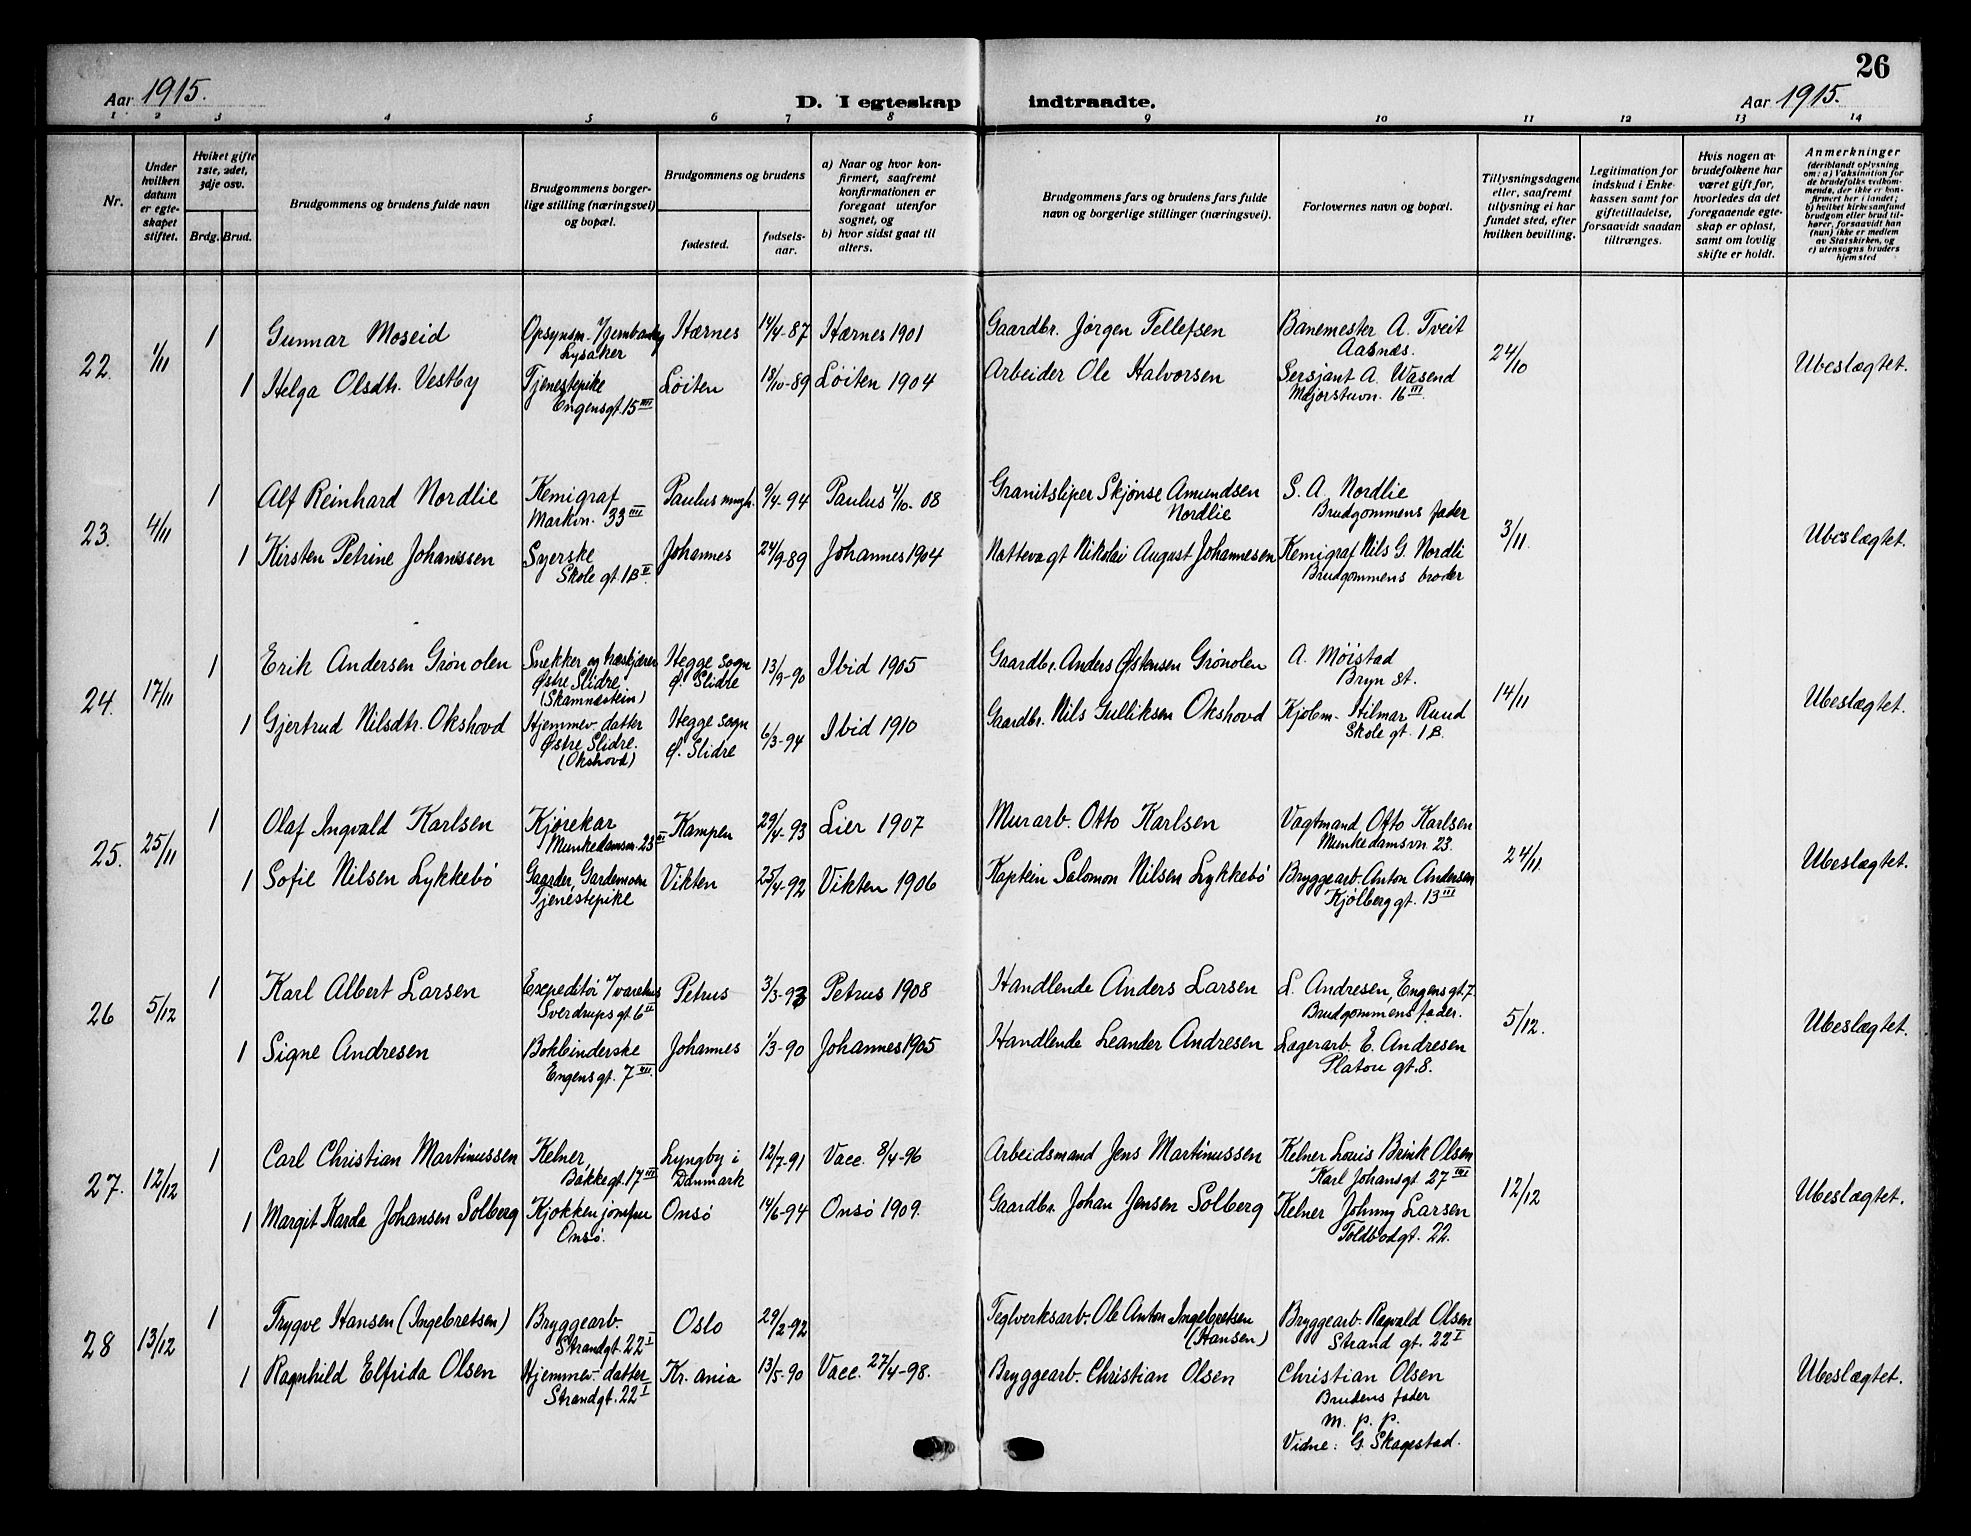 26
Aar 1915.
D. I egteskap indtraadte.
Aar 1915.
1 2 3 4 5 6 7 8 9 10 11 12 13 14
Nr.
Under hvilken datum er egteskapet stiftet.
Hviket gifte 1ste, 2det, 3dje osv.
Brdg. Brud.
Brudgommens og brudens fulde navn
Brudgommens borgerlige stilling (næringsvei) og bopæl.
Brudgommens og brudens
fødested.
fødselsaar.
a) Naar og hvor konfirmert, saafremt konfirmationen er foregaat utenfor sognet, og
b) hvor sidst gaat til alters.
Brudgommens fars og brudens fars fulde navn og borgerlige stillinger (næringsvei).
Forlovernes navn og bopæl.
Tillysningsdagene eller, saafremt tillysning ei har fundet sted, efter hvilken bevilling.
Legitimation for indskud i Enkekassen samt for giftetilladelse, forsaavidt saadan tiltrænges.
Hvis nogen av brudefolkene har været gift før, hvorledes da det foregaaende egteskap er opløst, samt om lovlig skifte er holdt.
Anmerkninger
(deriblandt oplysning om: a) Vaksination for de brudefolks vedkommende, der ikke er konfirmert her i landet; b) hvilket kirkesamfund brudgom eller brud tilhører, forsaavidt han (hun) ikke er medlem av Statskirken, og c) utensogns bruders hjemsted
22. 1/11
1 Gunnar Moseid Opsynsm. v/jernbanen Lysaker Hærnes 14/4-87 Hærnes 1901 Gaardbr. Jørgen Tellefsen Banemester A. Tveit Aasnæs.
24/10 Ubeslægtet.
1 Helga Olsdtr. Vestby Tjenestepike Engensgt. 15 III Løiten 18/10-89 Løiten 1904 Arbeider Ole Halvorsen Sersjant A. Wasend Majorstuvn. 16 III
23. 4/11
1 Alf Reinhard Nordlie Kemigraf Markvn. 33 III Paulus mngh. 9/4-94 Paulus 4/10-08 Granitsliper Skjønse Amundsen Nordlie S. A. Nordlie Brudgommens fader
3/11. Ubeslægtet.
1 Kirsten Petrine Johanssen Syerske Skole gt. 1B II Johannes 24/9-89 Johannes 1904 Nattevagt Nikolai August Johannesen Kemigraf Nils G. Nordli Brudgommens broder
24. 17/11
1 Erik Andersen Grönolen Snekker og træskjærer Østre Slidre (Skamnestein) Hegge Sogn Ø. Slidre 13/9-90 Ibid 1905 Gaardbr. Anders Østensen Grönolen A. Møistad Bryn st.
14/11 Ubeslægtet.
1 Gjertrud Nilsdtr. Okshovd Hjemmev. datter Østre Slidre. (Okshovd) Hegge sogn Ø. Slidre 6/3-94 Ibid 1910 Gaardbr. Nils Gulliksen Okshovd Kjøbm. Hilmar Ruud Skole gt. 1B.
25. 25/11
1 Olaf Ingvald Karlsen Kjørekar Munkedamsvn. 23 III Kampen 29/4-93 Lier 1907 Murarb. Otto Karlsen Vagtmand Otto Karlsen Munkedamsvn. 23.
24/11. Ubeslægtet.
1 Sofie Nilsen Lykkebö Gaarder, Gardemoen Tjenestepike Vikten 25/4-92 Vikten 1906 Kaptein Salomon Nilsen Lykkebö Bryggearb. Anton Andersen Kjølberggt. 13 III
26 5/12
1 Karl Albert Larsen Expeditör i/varehus Sverdrupsgt. 6 II Petrus 3/3-93 Petrus 1908 Handlende Anders Larsen L. Andresen, Engensgt. 7. Brudgommens fader.
5/12. Ubeslægtet.
1 Signe Andresen Bokbinderske Engensgt. 7 III. Johannes 1/3-90 Johannes 1905 Handlende Leander Andresen Lagerarb. E. Andresen Platou gt. 8.
27. 12/12
1 Carl Christian Martinussen Kelner, Bakkegt. 17 III Lyngby i Danmark 12/7-91 Vacc. 8/4-96 Arbeidsmand Jens Martinussen Kelner Louis Brink Olsen Karl Johansgt 27 III
12/12 Ubeslægtet.
1 Margit Karda Johansen Solberg Kjøkkenjomfru Onsö. Onsö 14/6-94 Onsö 1909. Gaardbr. Johan Jensen Solberg Kelner Johnny Larsen Toldbodgt. 22.
28 13/12
1 Trygve Hansen (Ingebretsen) Bryggearb. Strandgt. 22 I Oslo 29/2-92 Teglverksarb. Ole Anton Ingebretsen (Hansen) Bryggearb. Ragvald Olsen Strand gt. 22 I
Ubeslægtet.
1 Ragnhild Elfrida Olsen Hjemmev. datter Strandgt. 22 I Kr.ania 13/5-90 Vacc. 27/4-98. Bryggearb. Christian Olsen Christian Olsen Brudens fader
m. p. p.
Vidne: G. Skagestad.